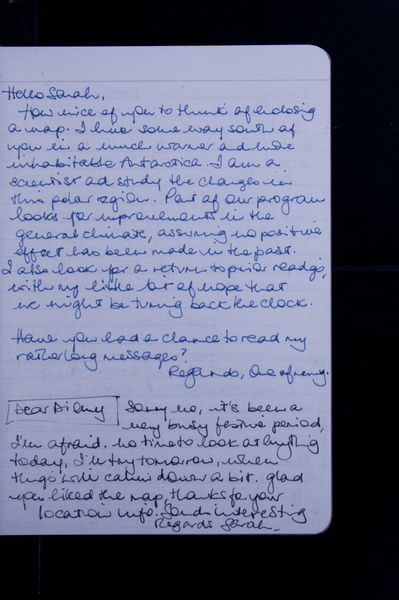 Hello Sarah,
How nice of you to think of enclosing
a map. I live some way south of
you in a much warmer ad more
inhabitable Antarctica. I am a
scientist ad study the changes in
this polar region. Part of our program
looks for improvements in the
general climate, assuming no positive
effect has been made in the past.
I also look for a return to prior readgs,
with my little bit of hope that
we might be turning back the clock.
Have you had a chance to read my
rather long messages?
Regards,
Dear
Sorry no, it's been a
very busy festive period,
I'm afraid. no time to look at anything
today, I'll try tomorrow, when
things will calm down a bit. glad
you liked the map, thanks for your
location info. Sounds interesting
Regards Sarah.